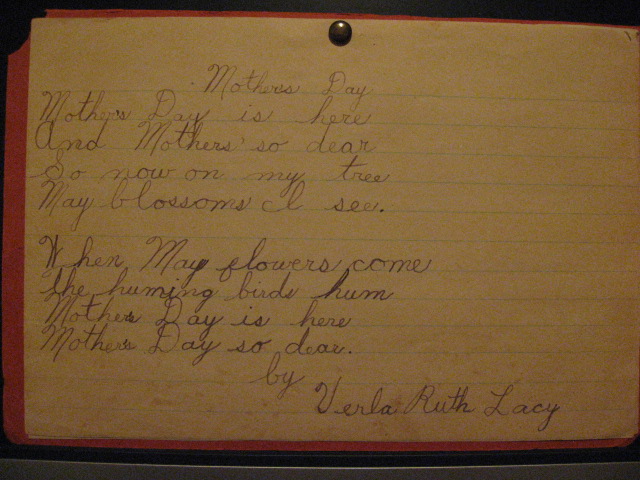 Mothers Day
Mothers Day is here
And Mothers' so dear
So now on my tree
May blossoms I see.
When May flowers come
The huming birds hum
Mothers Day is here
Mothers Day so dear.
by
Verla Ruth Lacy